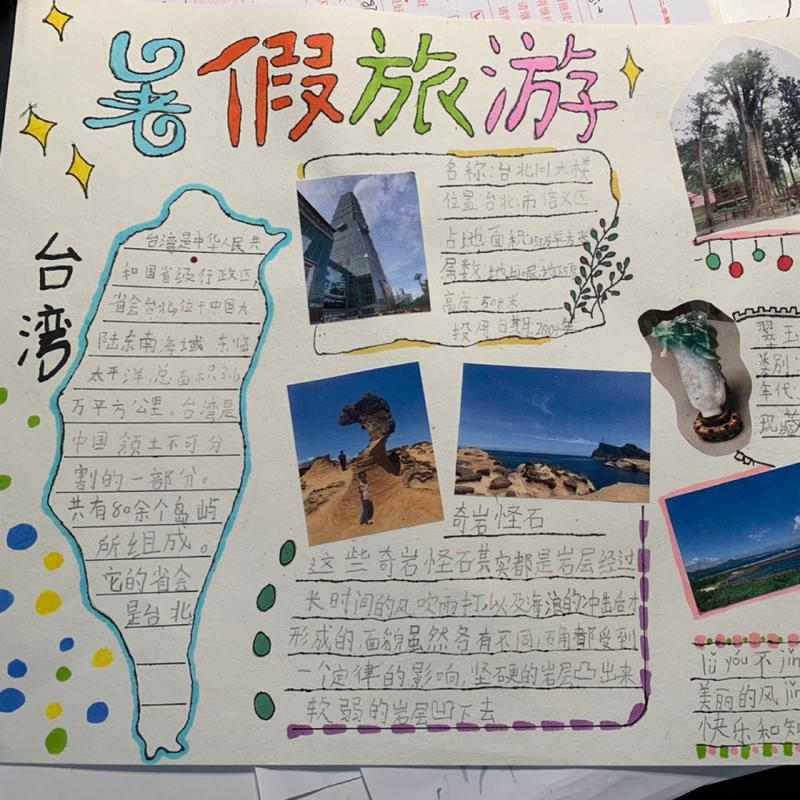 暑假旅游
台湾
台湾是中华人民共
和国省级行政区,
省会台北,位于中国大
陆东南海域,东临
太平洋,总面积3.6
万平方公里。台湾是
中国领土不可分
割的一部分。
共有80余个岛屿
所组成。
它的省会
是台北
名称:台北101大楼
位置:台北市信义区
占地面积:153万平方米
层数:
高度:508米
投用日期:2004年
奇岩怪石
这些奇岩怪石其实都是岩层经过
长时间的风吹雨打以及海浪的冲击后才
形成的,面貌虽然各有不同,确都受到
一个定律的影响,坚硬的岩层凸出来
软弱的岩层凹下去
翠玉
类别:
年代:
现藏
lǚ yóu 不 jǐn
美丽的风 jǐn
快乐和知